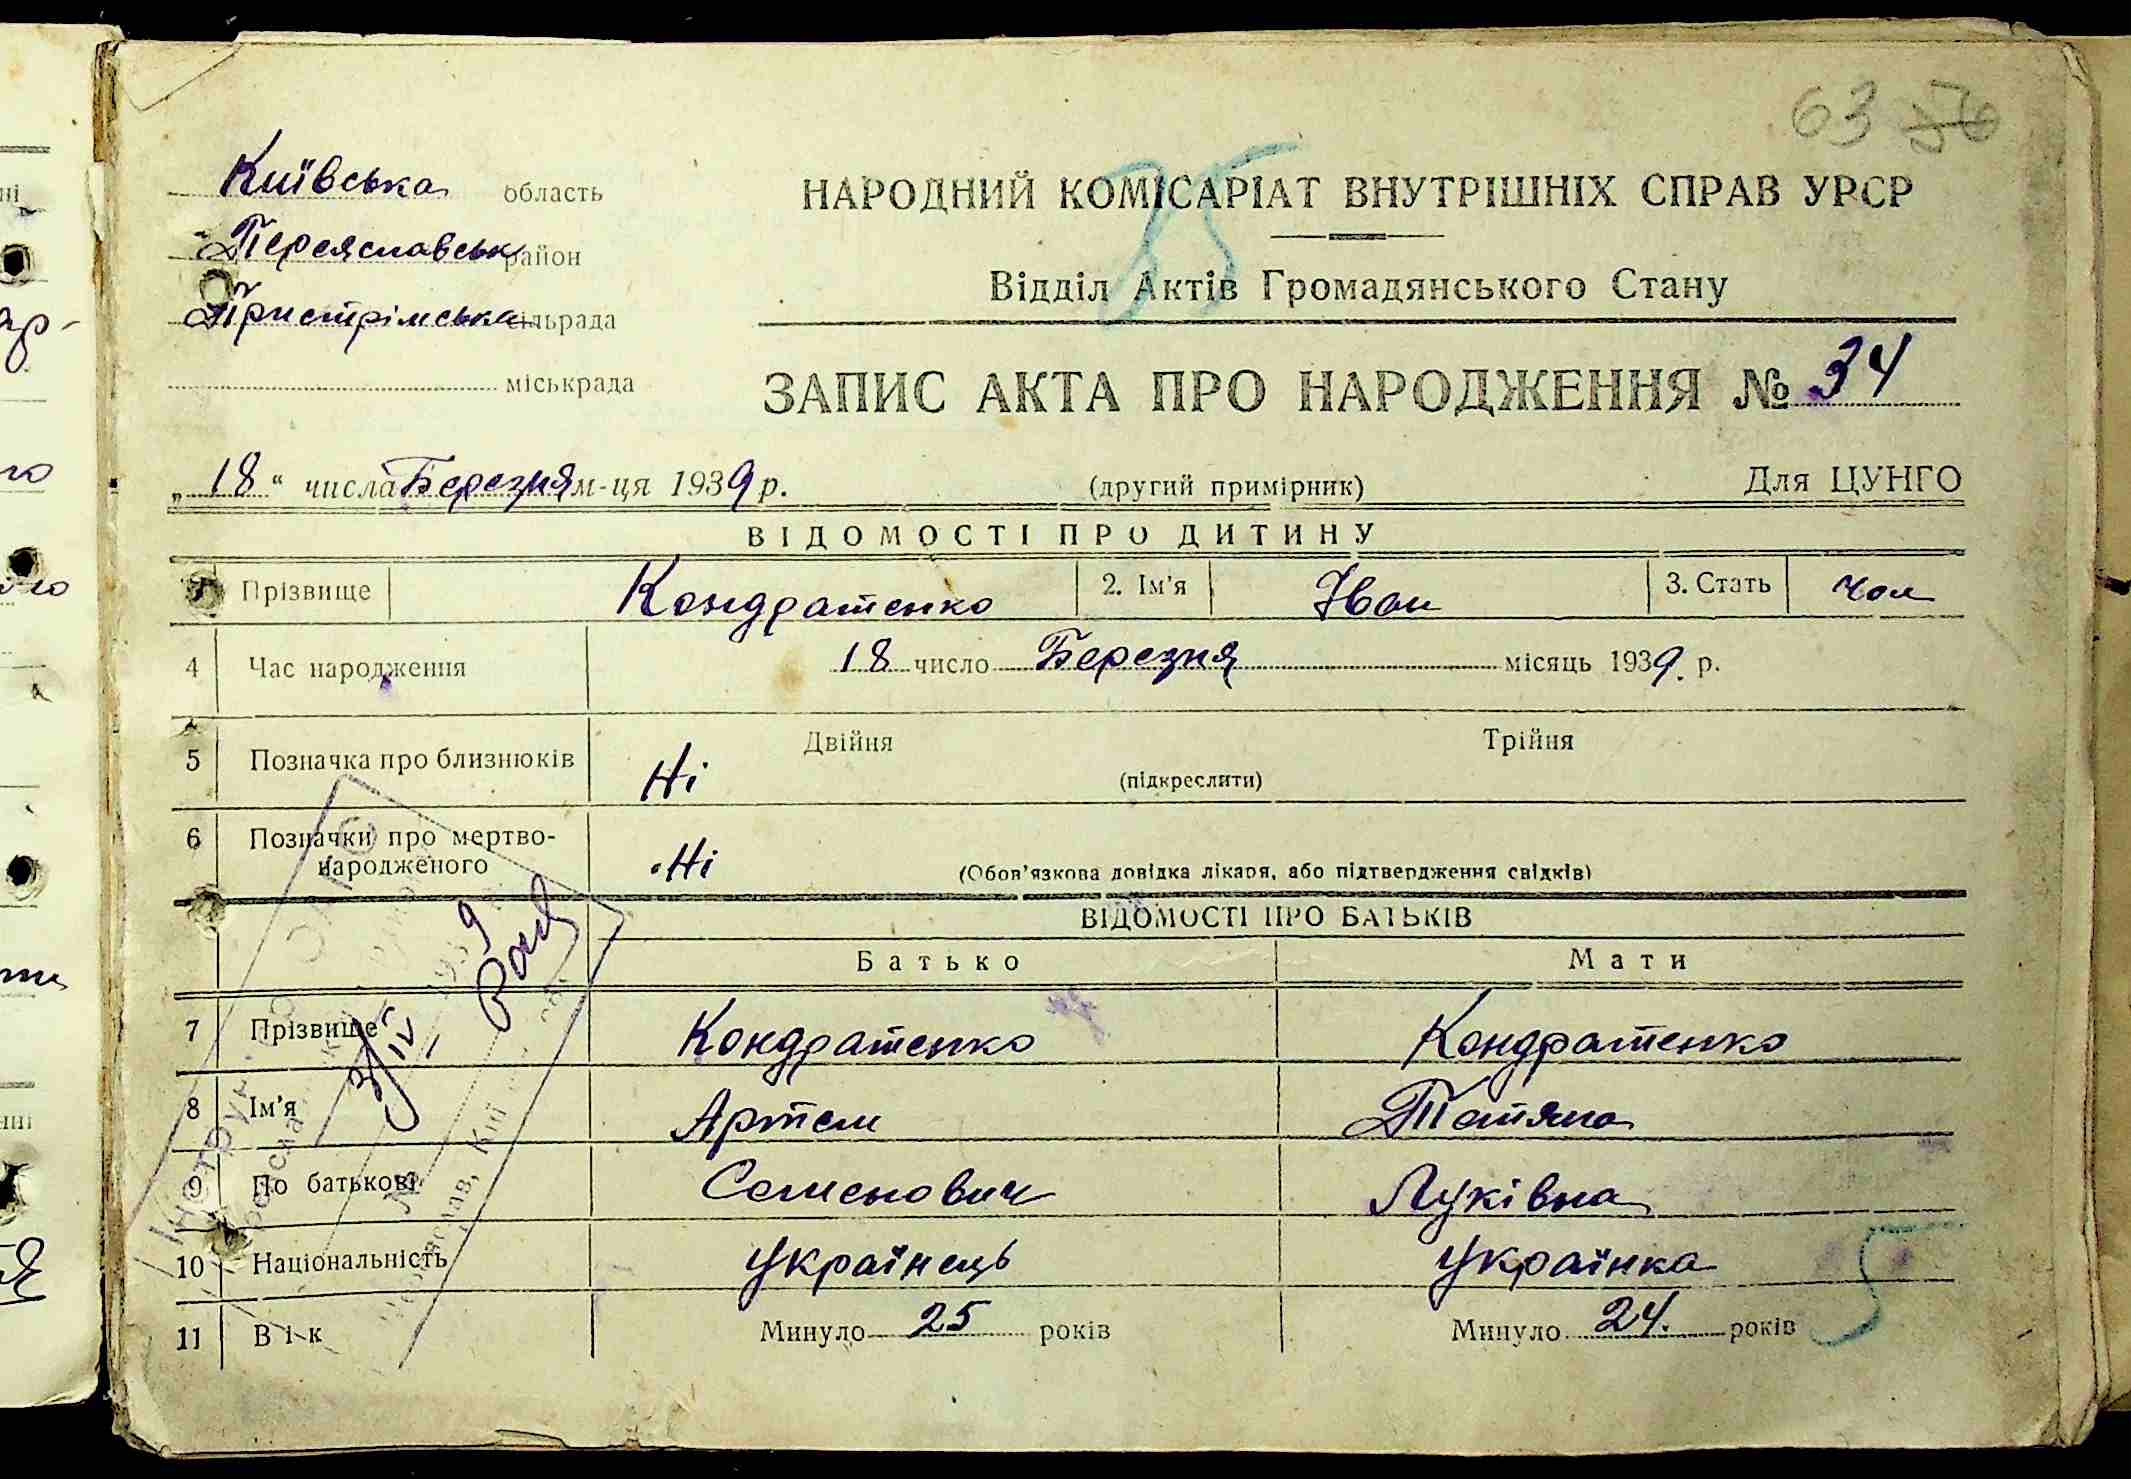 63 36
Київська область
Переяславськ район
Пристрімська сільрада
міськрада
НАРОДНИЙ КОМІСАРІАТ ВНУТРІШНІХ СПРАВ УРСР
Відділ Актів Громадянського Стану
ЗАПИС АКТА ПРО НАРОДЖЕННЯ № 34
„18“ числа Березня м-ця 1939 р. (другий примірник) Для ЦУНГО
ВІДОМОСТІ ПРО ДИТИНУ
Прізвище Кондратенко 2. Ім'я Іван 3. Стать чол
4 Час народження 18 число Березня місяць 1939. р.
5 Позначка про близнюків Ні Двійня Трійня
(підкреслити)
6 Позначки про мертво-
народженого Ні (Обов'язкова довідка лікаря, або підтвердження свідків)
ВІДОМОСТІ ПРО БАТЬКІВ
Батько Мати
7 Прізвище Кондратенко Кондратенко
8 Ім'я Артем Татяна
9 По батькові Семенович Луківна
10 Національність Українець Українка
11 Вік Минуло 25 років Минуло 24. років
5